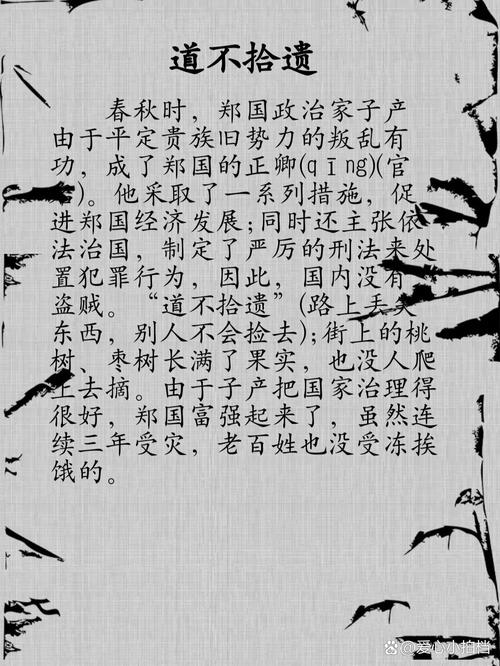 道不拾遗
春秋时，郑国政治家子产
由于平定贵族旧势力的叛乱有
功，成了郑国的正卿(qīng)(官
名)。他采取了一系列措施，促
进郑国经济发展;同时还主张依
法治国，制定了严厉的刑法来处
置犯罪行为，因此，国内没有
盗贼。“道不拾遗”(路上丢失
东西，别人不会捡去);街上的桃
树、枣树长满了果实，也没人爬
上去摘。由于子产把国家治理得
很好，郑国富强起来了，虽然连
续三年受灾，老百姓也没受冻挨
饿的。
爱心小拍档